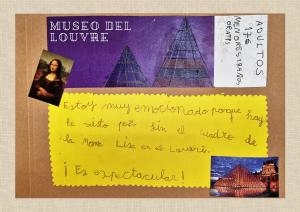 MUSEO DEL
LOUVRE
ADULTOS
17€
MENORES 18 AÑOS
GRATIS
Estoy muy emocionado porque hoy
he visto por fin el cuadro de
la Mona Lisa en el Louvre.
¡Es espectacular!